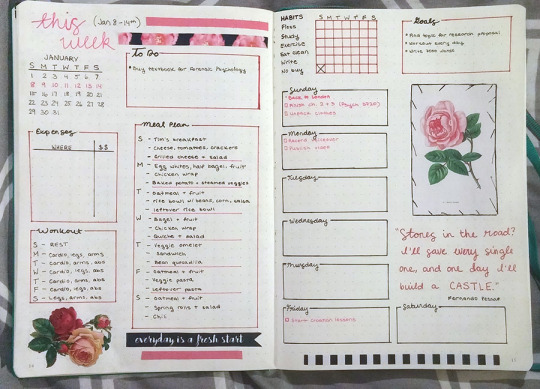 this week
(Jan 8-14th)
JANUARY
S M T W T F S
1 2 3 4 5 6 7
8 9 10 11 12 13 14
15 16 17 18 19 20 21
22 23 24 25 26 27 28
29 30 31
To Do
Buy textbook for Forensic Psychology
Expenses
WHERE $$
Workout
S - REST
M - Cardio, legs, arms
T - Cardio, arms, abs
W - Cardio, legs, abs
T - Cardio, arms, abs
F - Cardio, legs, abs
S - Legs, arms, abs
Meal Plan
S - Tim's breakfast
- Cheese, tomatoes, crackers
- Grilled cheese + salad
M - Egg whites, half bagel, fruit
- Chicken wrap
- Baked potato + steamed veggies
T - Oatmeal + fruit
- rice bowl w/ beans, corn, salsa
- leftover rice bowl
W - Bagel + fruit
- Chicken wrap
- Quiche + salad
T - Veggie omelet
- Sandwich
- Bean quesadilla
F - Oatmeal + fruit
- Veggie pasta
- leftover pasta
S - Oatmeal + fruit
- Spring rolls + salad
- Chili
everyday is a fresh start
HABITS S M T W T F S
Floss
Study
Exercise
Eat clean
Write
No buy
Goals
Find topic for research proposal
Workout every day
Write words
Sunday
Back to London
Finish ch. 2 + 3
Unpack clothes
Monday
Publish video
Tuesday
Wednesday
Thursday
Friday
Start Croatian lessons
Saturday
"Stones in the road?
I'll save every single
one, and one day I'll
build a CASTLE."
Fernando Pessoa